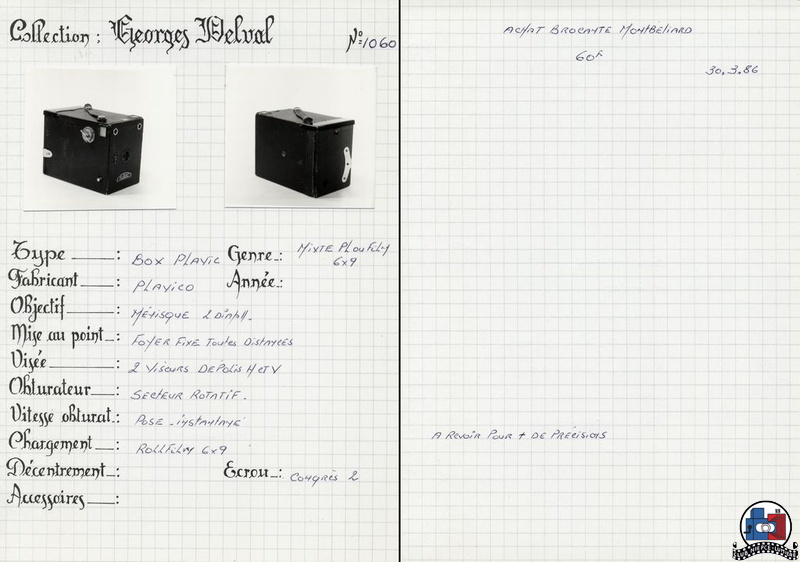 Collection : Georges Delval
N° 1060
Type : BOX PLAVIC Genre : MIXTE PL ou FILM 6x9
Fabricant : PLAVICO Année :
Objectif : MÉNISQUE 2 DIAPH.
Mise au point : FOYER FIXE Toutes DISTANCES
Visée : 2 VISEURS DÉPOLIS H et V
Obturateur : SECTEUR ROTATIF.
Vitesse obturat. : POSE - INSTANTANÉ
Chargement : ROLLFILM 6x9
Décentrement : Ecrou : CONGRÈS 2
Accessoires :
ACHAT BROCANTE MONTBÉLIARD
60F
30.3.86
A REVOIR POUR + DE PRÉCISIONS